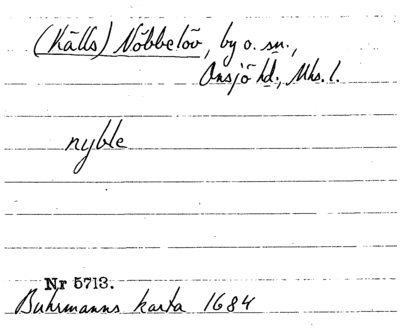 (Källs) Nöbbelöv, by o. sn.,
Onsjö hd., Mhs. l.
nyble
Nr 5713.
Buhrmanns karta 1684